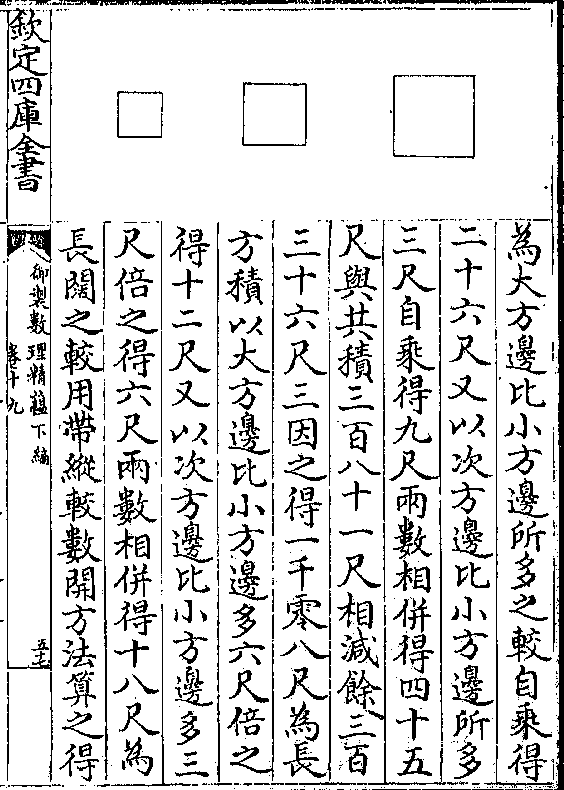 為大方邊比小方邊所多之較自乘得
二十六尺又以次方邊比小方邊所多
三尺自乘得九尺兩數相併得四十五
尺與共積三百八十一尺相減餘三百
三十六尺三因之得一千零八尺為長
方積以大方邊比小方邊多六尺倍之
得十二尺又以次方邊比小方邊多三
尺倍之得六尺兩數相併得十八尺為
長闊之較用帶縱較數開方法算之得
欽定四庫全書
御製數理精藴下編
卷十九